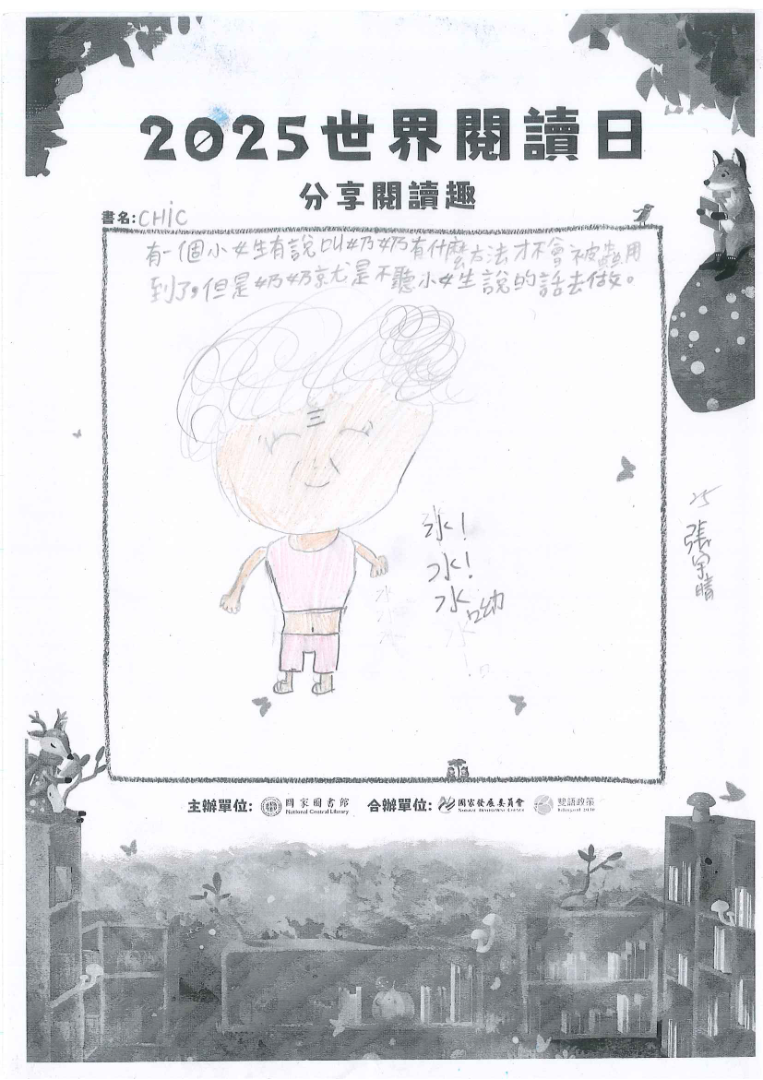 2025世界閱讀日
分享閱讀趣
書名:CHiC
有一個小女生有說叫奶奶有什麼方法才不會被蟲用
到了,但是奶奶就是不聽小女生說的話去做。
水!
水!
水
25
張
晴
主辦單位: 國家圖書館 合辦單位: 國家發展委員會 雙語政策
National Central Library